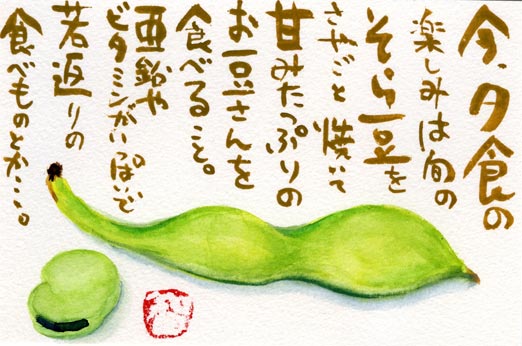 今、夕食の
楽しみは旬の
そら豆を
さやごと焼いて
甘みたっぷりの
お豆さんを
食べること。
亜鉛や
ビタミンがいっぱいで
若返りの
食べものとか・・・。